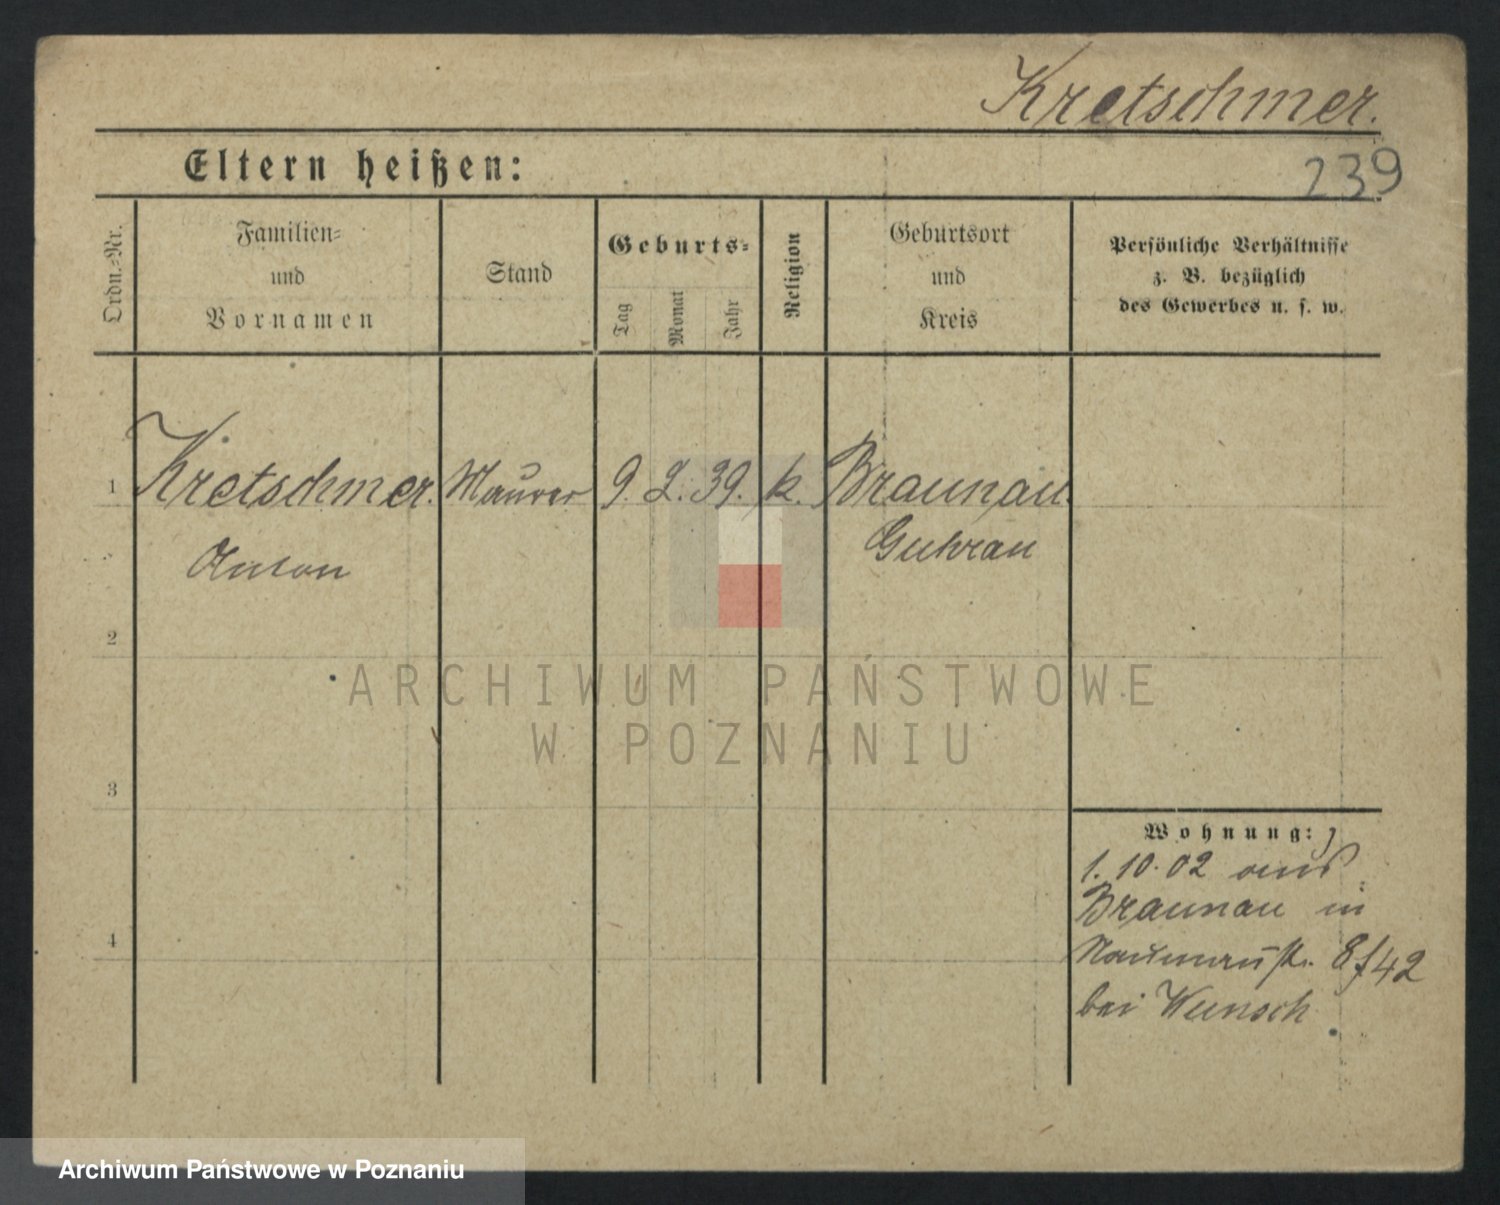 Kretschmer.
Eltern heißen:
239
Ordn.-Nr.
Familien-
und
Vornamen
Stand
Geburts-
Tag
Monat
Jahr
Religion
Geburtsort
und
Kreis
Persönliche Verhältnisse
z. B. bezüglich
des Gewerbes u. s. w.
1 Kretschmer. Maurer 9. 2. 39. k. Braunau.
Anton Guhrau
2
ARCHIWUM PAŃSTWOWE
W POZNANIU
3
Wohnung:
1. 10. 02 aus
Braunau in
4
Naumannstr. 8f42
bei Wunsch
Archiwum Państwowe w Poznaniu